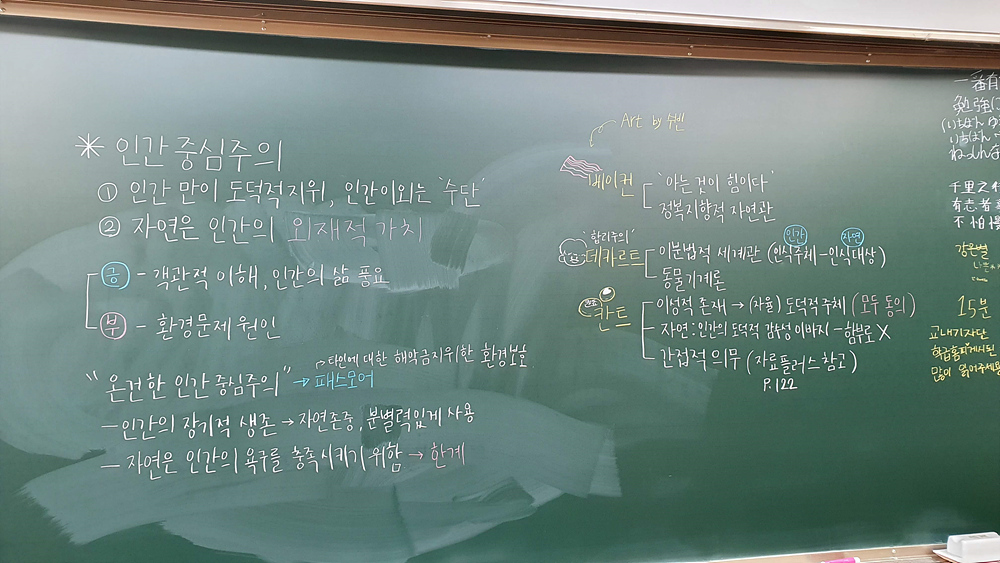 * 인간중심주의
① 인간 만이 도덕적지위, 인간이외는 '수단'
② 자연은 인간의 외재적 가치
긍 - 객관적 이해, 인간의 삶 풍요
부 - 환경문제 원인
타인에 대한 해악금지위한 환경보호
"온건한 인간중심주의" → 패스모어
- 인간의 장기적 생존 → 자연존중, 분별력있게 사용
- 자연은 인간의 욕구를 충족시키기 위함 → 한계
Art by 수빈
베이컨
'아는것이 힘이다'
정복지향적 자연관
"합리주의"
데카르트
인간 자연
이분법적 세계관 (인식주체-인식대상)
동물기계론
칸트
이성적 존재 → (자율) 도덕적주체 (모두 동의)
자연: 인간의 도덕적 감수성 이바지 - 함부로 X
간접적 의무 (자료플러스 참고)
P.122
一番有
勉強(
いちばん ゆ
いちばん
ねっしんな
千里之
有志者
不怕慢
강은별
15분
교내기자단
학급홈피게시된
많이 읽어주세용